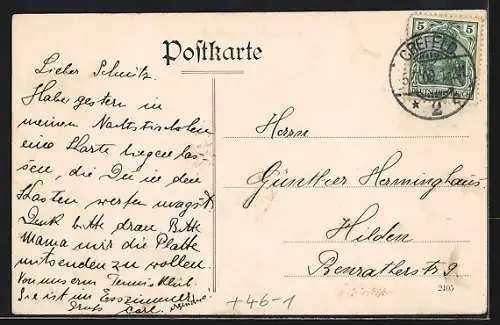 Postkarte
5 5
CREFELD
* 2
Lieber Schmitz.
Habe gestern in
meinem Nachttischchen
eine Karte liegen las-
sen, die Du in den
Kasten werfen magst.
Denk bitte dran. Bitte
Mama mir die Platte
mitsenden zu wollen.
Von unserm Tennis Klub.
Sie ist im Esszimmer
Gruss Carl.
Herrn
Günther Herminghaus
Hilden
Benratherstr 9.
2405
+46-1